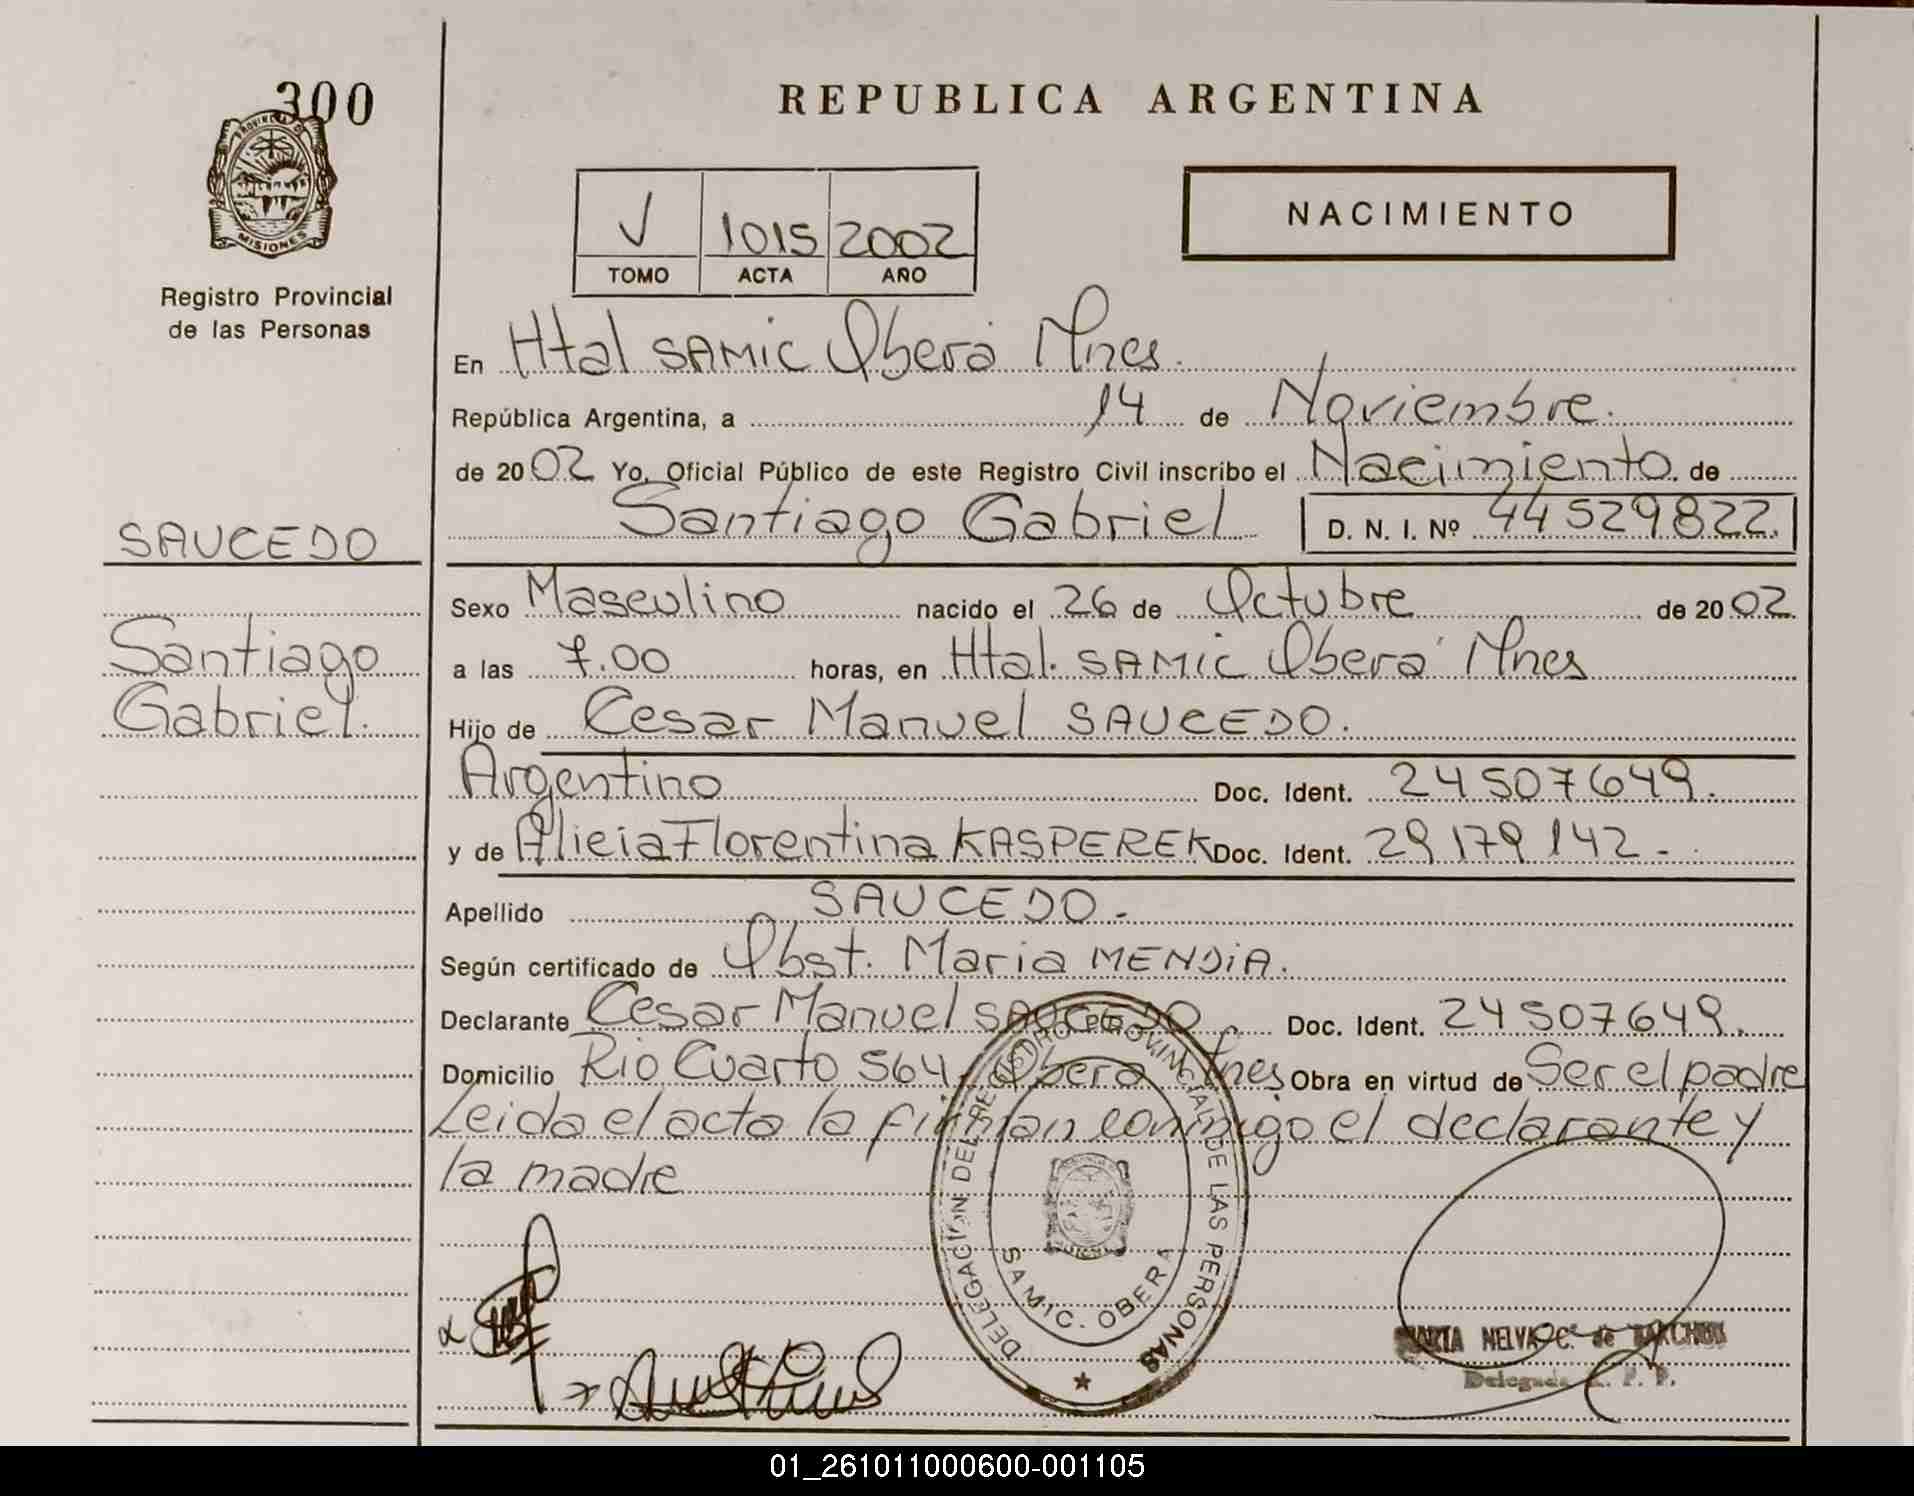 300
PROVINCIA DE
MISIONES
Registro Provincial
de las Personas
SAUCEDO
Santiago
Gabriel.
REPUBLICA ARGENTINA
V 1015 2002
TOMO ACTA AÑO
NACIMIENTO
En Htal SAMIC Oberá Mnes.
República Argentina, a 14 de Noviembre.
de 2002 Yo, Oficial Público de este Registro Civil inscribo el Nacimiento. de
Santiago Gabriel D. N. I. Nº 44529822.
Sexo Masculino nacido el 26 de Octubre de 2002.
a las 7.00 horas, en Htal. SAMIC Oberá Mnes
Hijo de Cesar Manuel SAUCEDO.
Argentino Doc. Ident. 24507649.
y de Alicia Florentina KASPEREK Doc. Ident. 29179142-.
Apellido SAUCEDO.-
Según certificado de Obst. Maria MENDIA.
Declarante Cesar Manuel SAUCEDO Doc. Ident. 24507649.
Domicilio Rio Cuarto 564 Obera Mnes Obra en virtud de Ser el padre
Leida el acta la firman conmigo el declarante y
la madre
DELEGACION DEL REGISTRO PROVINCIAL DE LAS PERSONAS
SAMIC. OBERA
NELVA C. de
Delegada R. P. P.
01_261011000600-001105